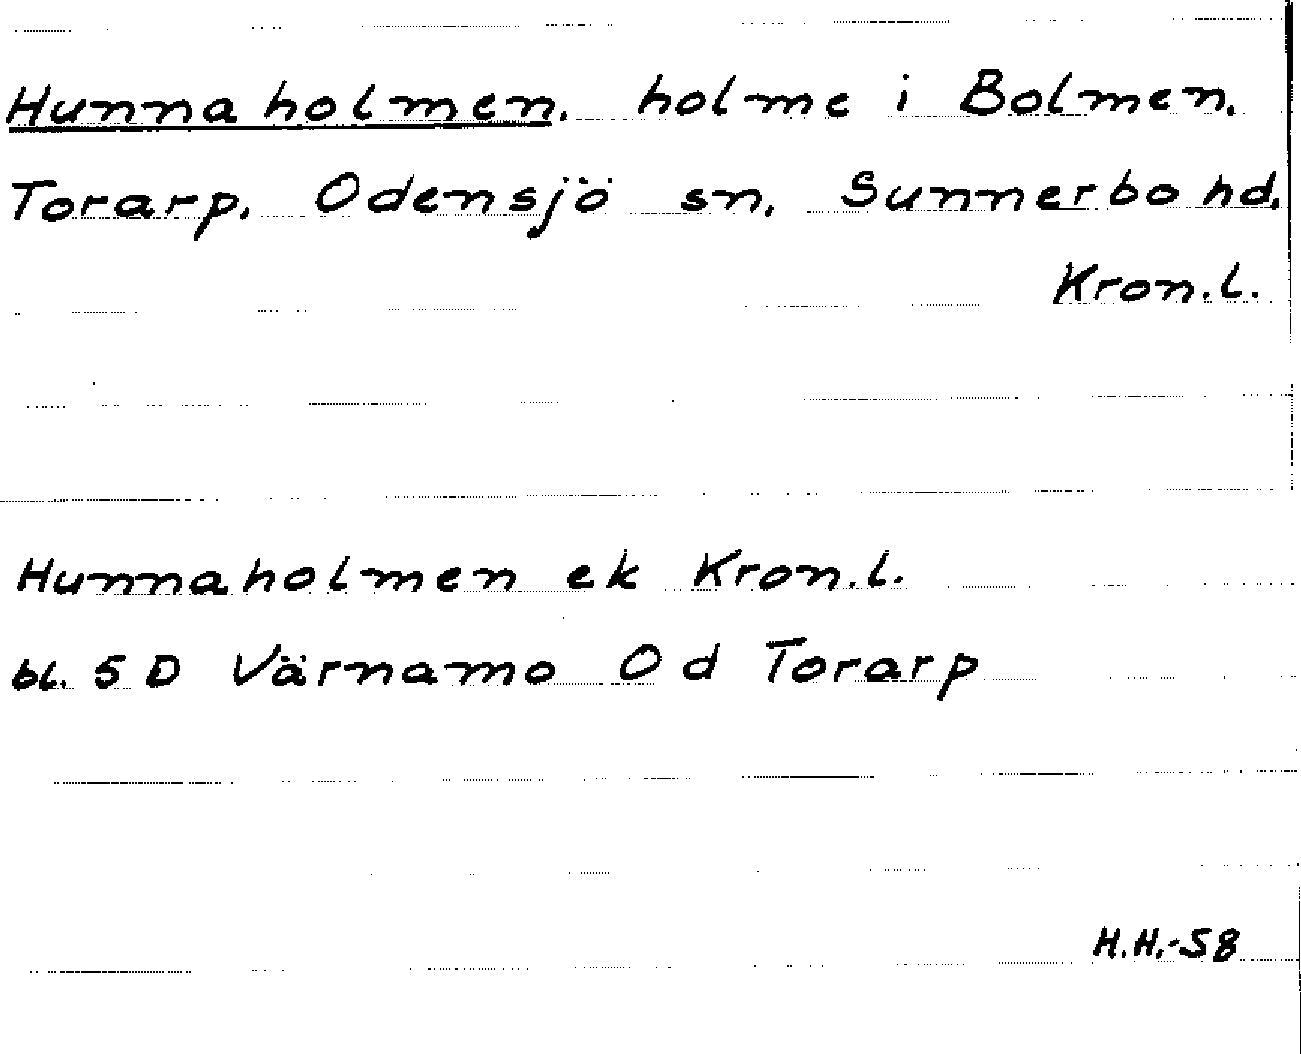 Hunnaholmen, holme i Bolmen,
Torarp, Odensjö sn, Sunnerbo hd,
Kron.l.
Hunnaholmen ek Kron.l.
bl. 5 D Värnamo Od Torarp
H.H.-58